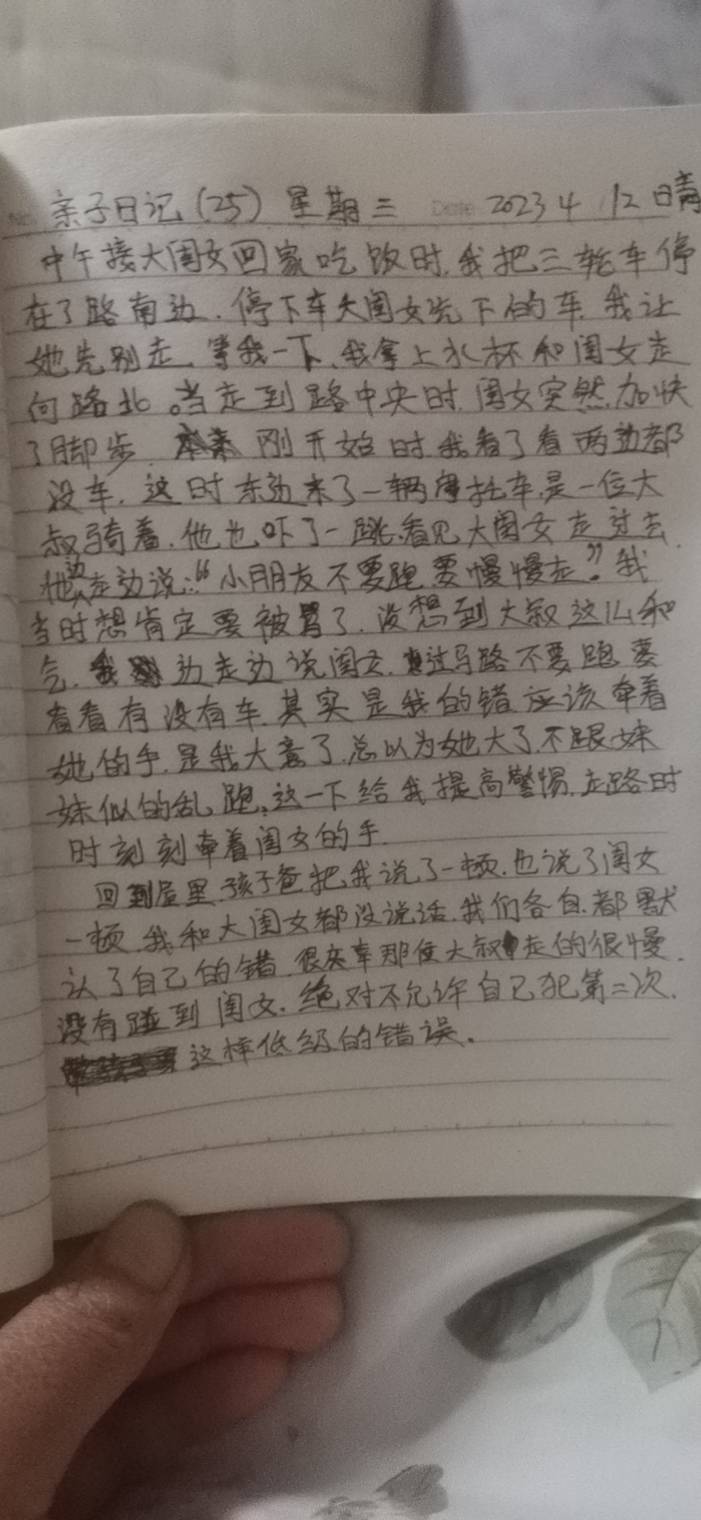 亲子日记(25) 星期三 Date 2023 4 12 晴
中午接大闺女回家吃饭时,我把三轮车停
在了路南边.停下车大闺女先下的车.我让
她先别走,等我一下,我拿上水杯和闺女走
向路北。当走到路中央时.闺女突然加快
了脚步. 刚开始时我看了看两边都
没车.这时东边来了一辆摩托车,是一位大
叔骑着.他也吓了一跳.看见大闺女走过去.
他边走边说:“小朋友不要跑要慢慢走”。我
当时想肯定要被骂了.没想到大叔这么和
气. 边走边说闺女.过马路不要跑要
看看有没有车.其实是我的错应该牵着
她的手.是我大意了.总以为她大了.不跟妹
妹似的乱跑.这一下给我提高警惕.走路时
时刻刻牵着闺女的手.
回到屋里.孩子爸把我说了一顿.也说了闺女
一顿.我和大闺女都没说话.我们各自都默
认了自己的错.很庆幸那位大叔走的很慢.
没有碰到闺女.绝对不允许自己犯第二次.
这样低级的错误.